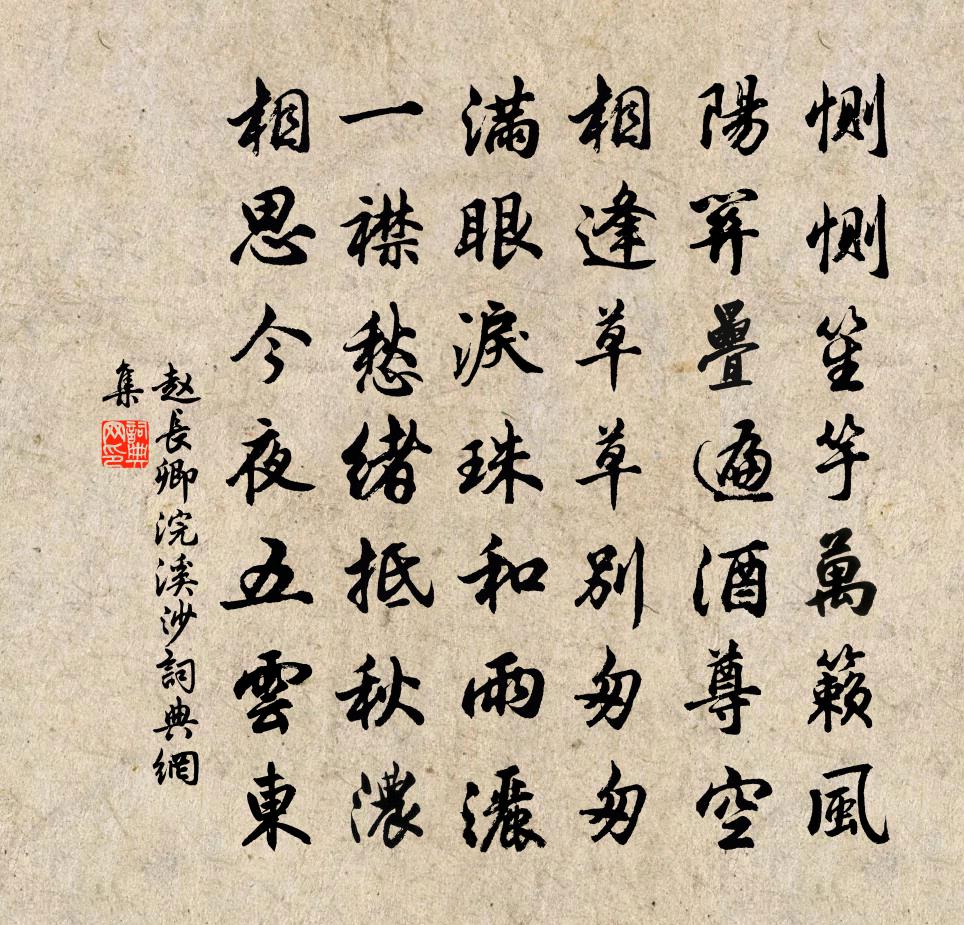 惻惻笙竽萬籟風
陽關疊遍酒尊空
相逢草草別匆匆
滿眼淚珠和雨灑
一襟愁緒抵秋濃
相思今夜五雲東
赵長卿浣溪沙詞典網
集
詞典网印